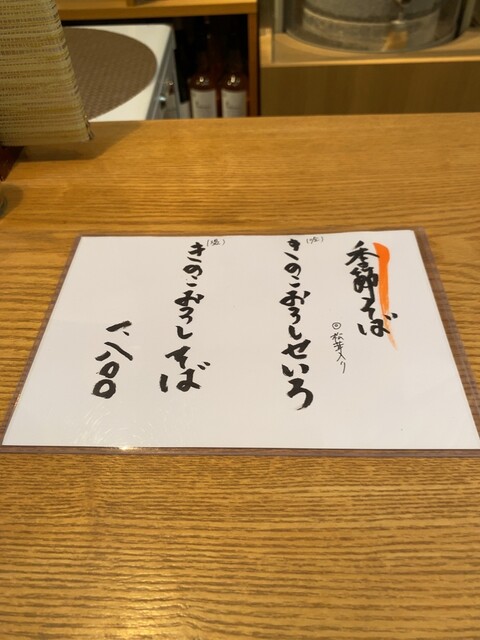 季節そば
◎松茸入り
(冷)
きのこおろしせいろ
(温)
きのこおろしそば
一、八〇〇